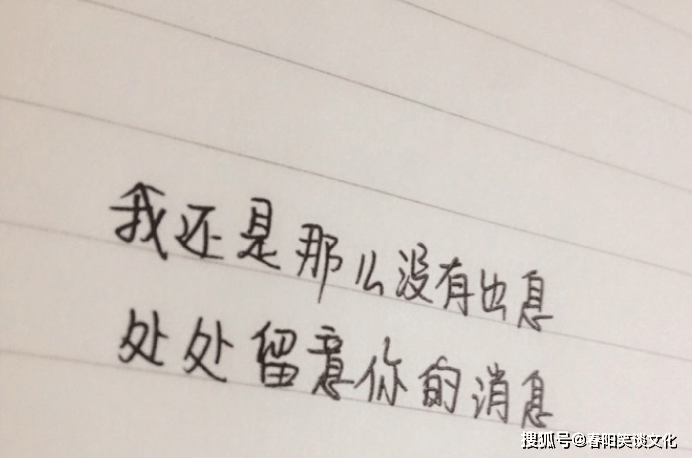 我还是那么没有出息
处处留意你的消息
搜狐号@春阳笑谈文化